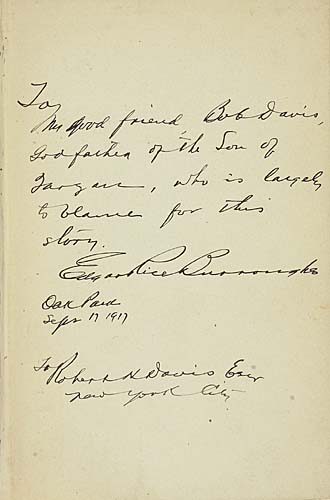 To,
My good friend Bob Davis,
Godfather of the Son of
Tarzan, who is largely
to blame for this
story.
Edgar Rice Burroughs
Oak Park
Sept 17 1917
To Robert H Davis Esqr
New York City